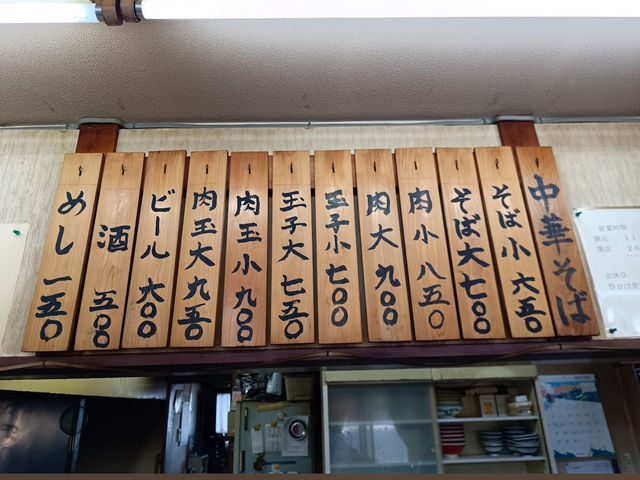 中華そば
そば小 六五〇
そば大 七〇〇
肉小 八五〇
肉大 九〇〇
玉子小 七〇〇
玉子大 七五〇
肉玉小 九〇〇
肉玉大 九五〇
ビール 六〇〇
酒 五〇〇
めし 一五〇
営業時間
開店 11
閉店 20
定休日